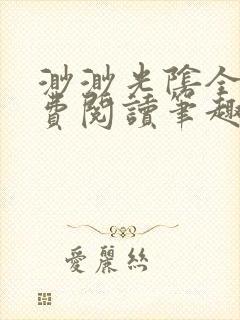 渺渺光陰全
費閱讀筆趣
愛麗絲